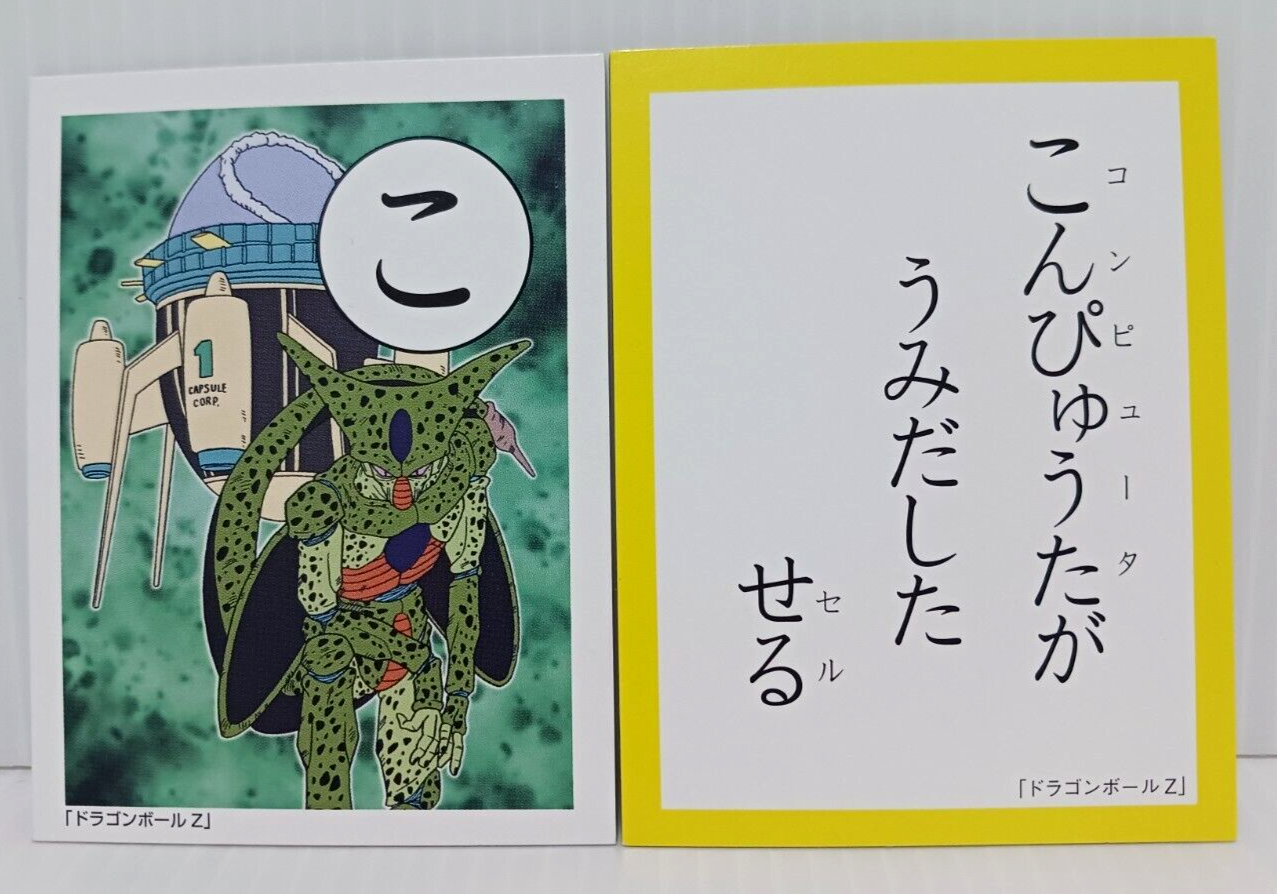 こ
1
CAPSULE
CORP.
「ドラゴンボールZ」
こんぴゅうたが
コンピュータ
うみだした
せる
セル
「ドラゴンボールZ」